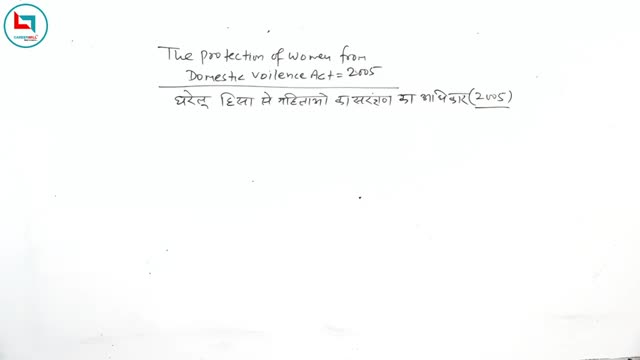 CAREERWILL
The protection of women from
Domestic Voilence Act = 2005
घरेलू हिंसा से महिलाओ का सरंक्षण का अधिकार (2005)